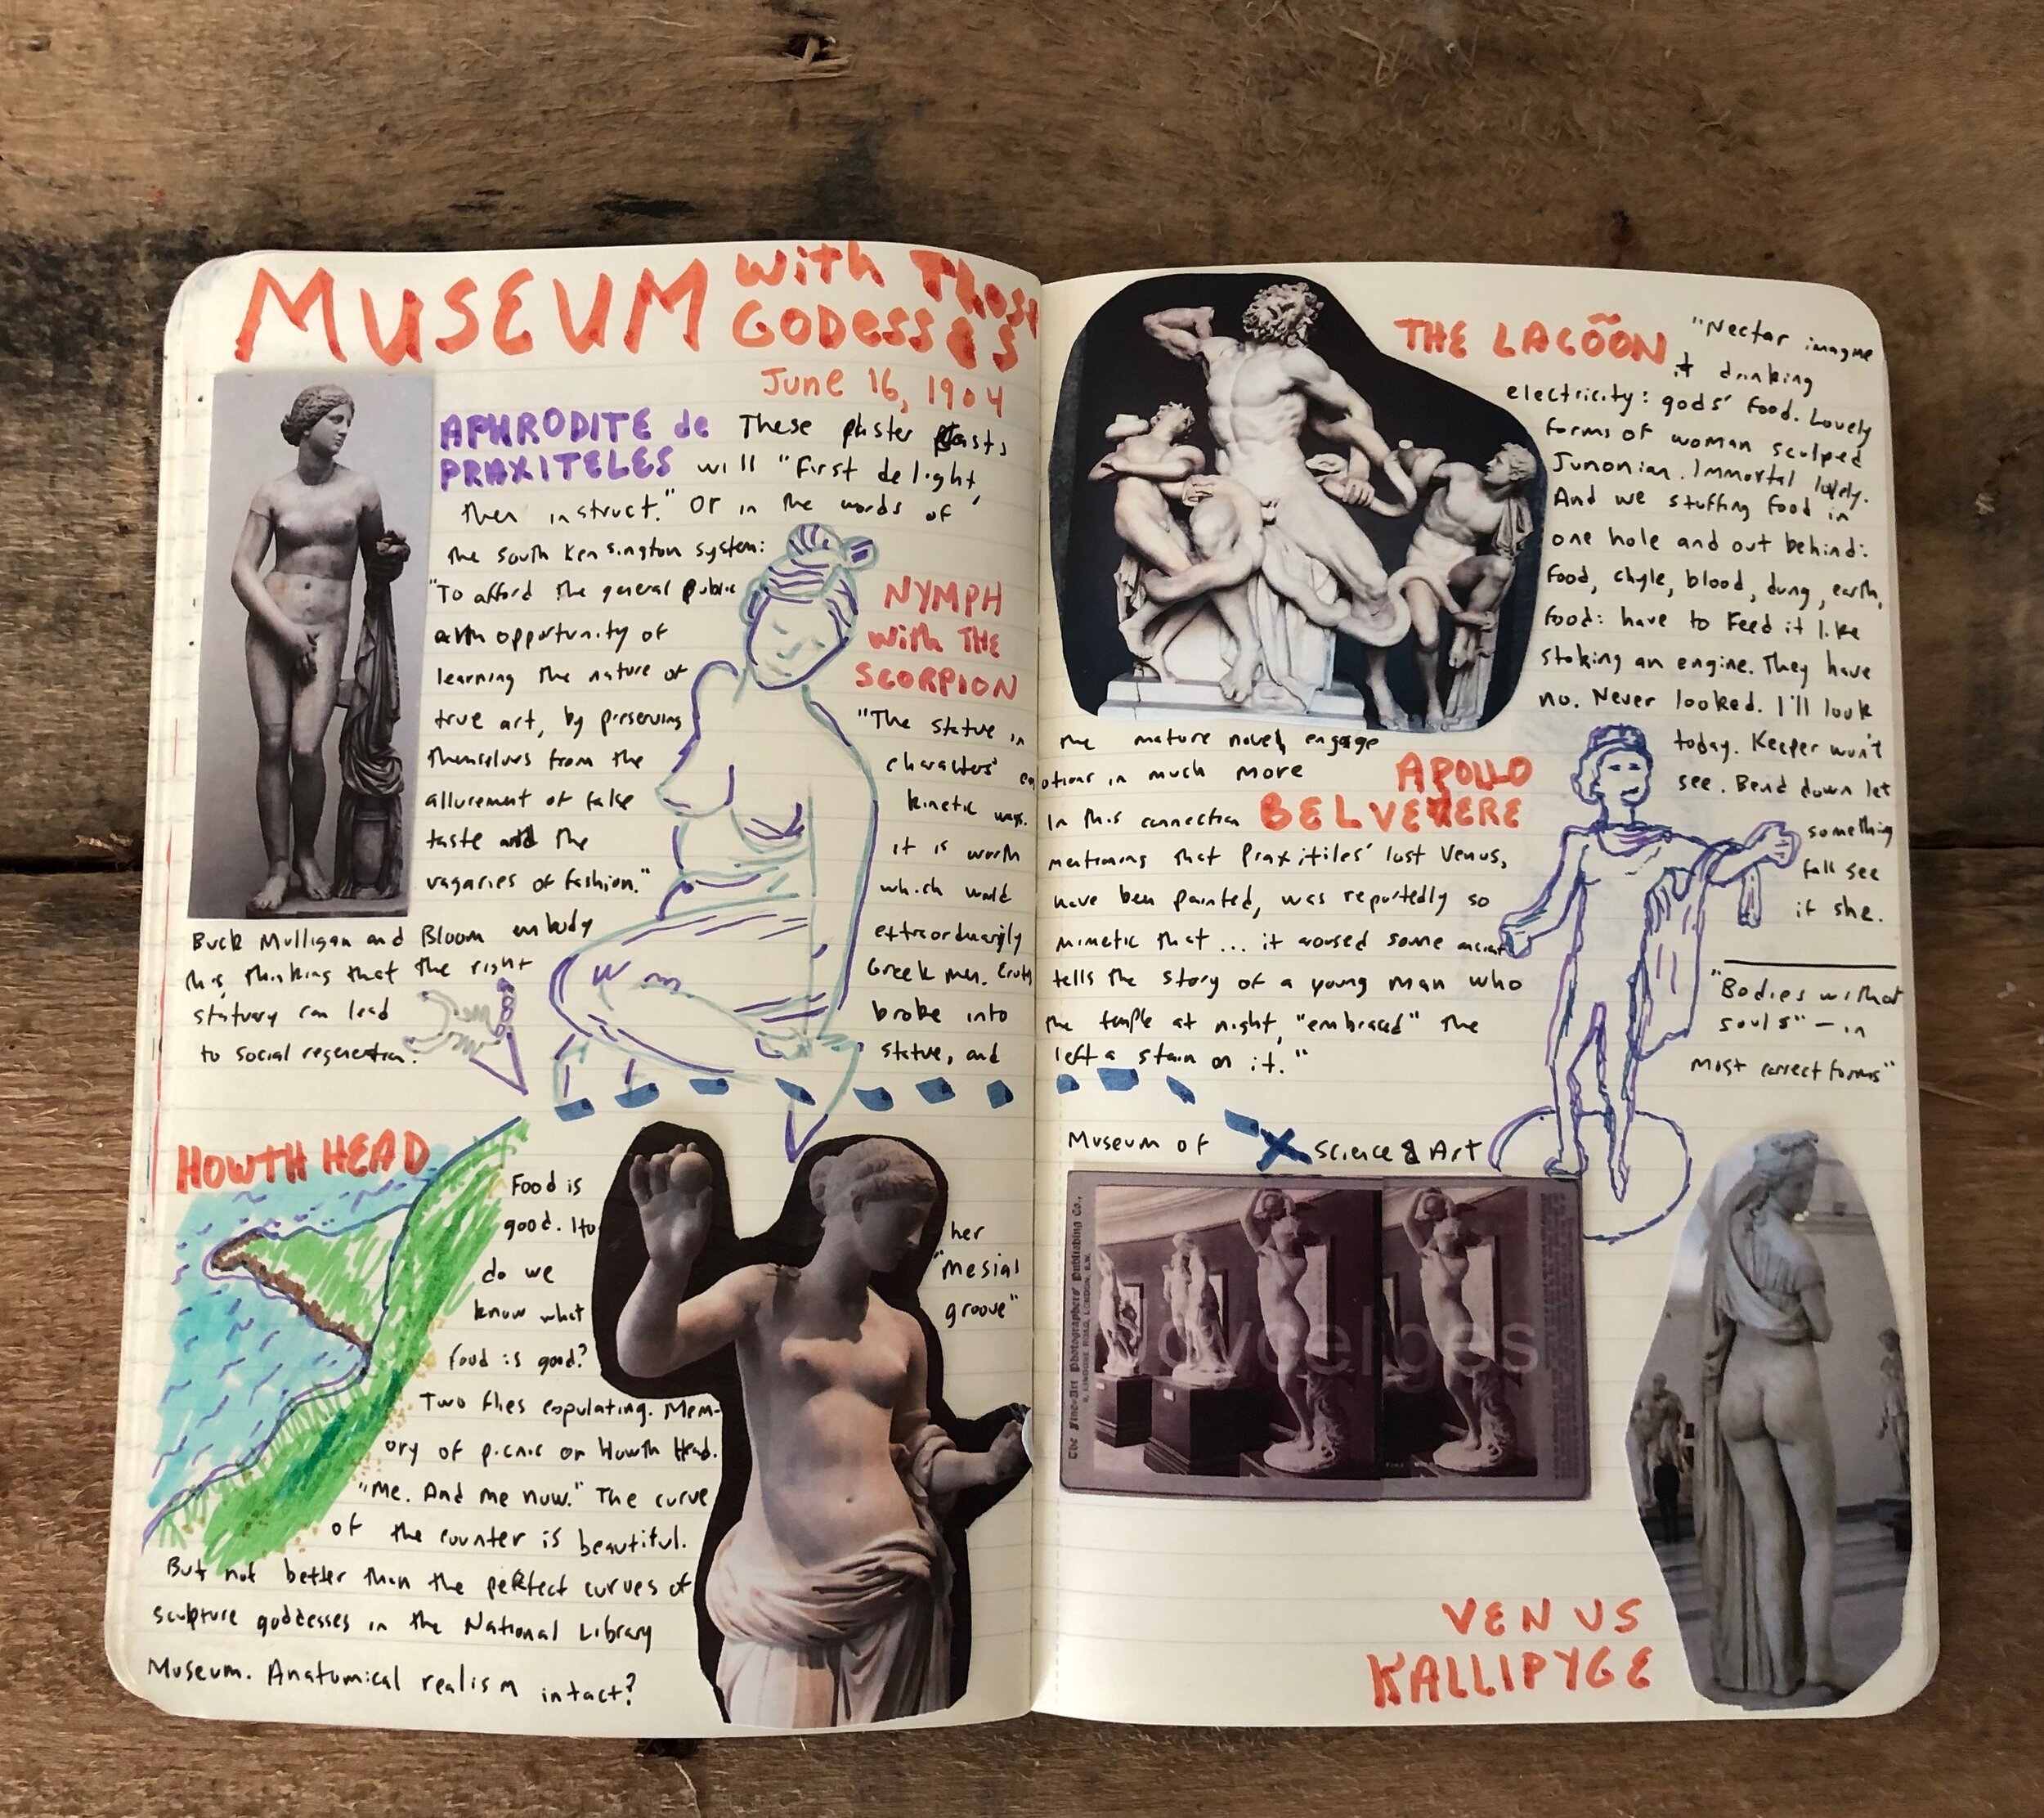 MUSEUM with Those
GODESSES
June 16, 1904
APHRODITE de
PRAXITELES
These plaster casts
will "First delight,
then instruct." Or in the words of
the South Kensington system:
"To afford the general public
an opportunity of
learning the nature of
true art, by preserving
themselves from the
allurement of false
taste and the
vagaries of fashion."
Buck Mulligan and Bloom embody
this, thinking that the right
statuary can lead
to social regeneration.
NYMPH
with THE
SCORPION
"The statue in
characters'
kinetic ways.
it is worth
which would
extraordinarily
Greek men.
broke into
statue, and
HOWTH HEAD
Food is
good. How
do we
know what
food is good?
Two flies copulating. Mem-
ory of picnic on Howth Head.
"Me. And me now." The curve
of the counter is beautiful.
But not better than the perfect curves of
sculpture goddesses in the National Library
Museum. Anatomical realism intact?
her
"mesial
groove"
THE LACÕÕN
"Nectar imagine
it drinking
electricity: gods' food. Lovely
forms of woman sculped
Junonian. Immortal lovely.
And we stuffing food in
one hole and out behind:
food, chyle, blood, dung, earth,
food: have to feed it like
stoking an engine. They have
no. Never looked. I'll look
today. Keeper won't
see. Bend down let
something
fall see
if she.
"Bodies without
souls" – in
most correct forms"
the mature novel, engage
otions in much more
APOLLO
BELVEDERE
In this connection
mentioning that Praxitiles' lost Venus,
have been painted, was reportedly so
mimetic that... it aroused some ancient
tells the story of a young man who
the temple at night, "embraced" the
left a stain on it."
Museum of Science & Art
The Fine-Art Photographers' Publishing Co.,
LONDON,
VENUS
KALLIPYGE